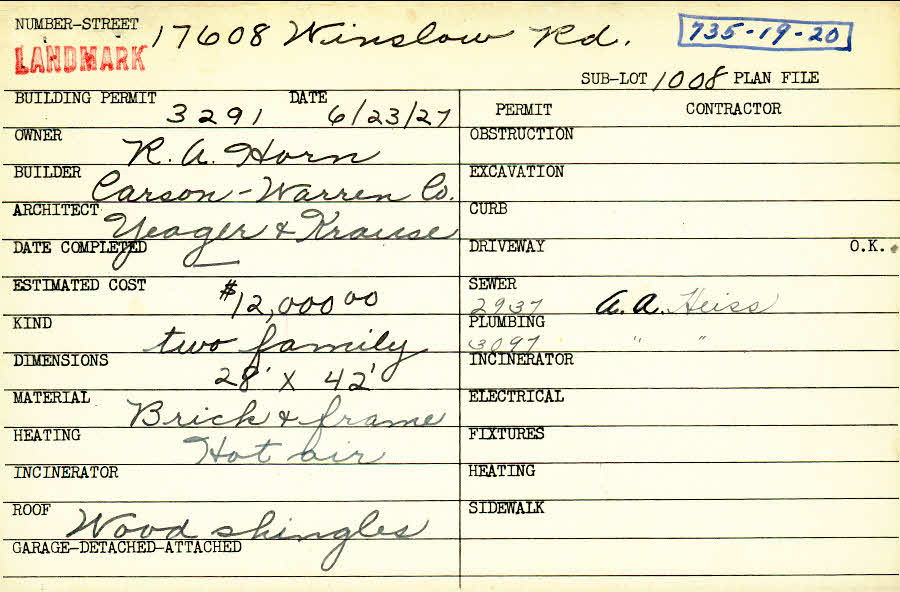 NUMBER-STREET 17608 Winslow Rd. 735-19-20
LANDMARK
SUB-LOT 1008 PLAN FILE
BUILDING PERMIT 3291 DATE 6/23/27
OWNER R. A. Horn
BUILDER Carson-Warren Co.
ARCHITECT Yeager & Krause
DATE COMPLETED —
ESTIMATED COST $12,000 00
KIND two family
DIMENSIONS 28' X 42'
MATERIAL Brick & frame
HEATING Hot air
INCINERATOR
ROOF Wood shingles
GARAGE-DETACHED-ATTACHED
PERMIT CONTRACTOR
OBSTRUCTION
EXCAVATION
CURB
DRIVEWAY O.K.
SEWER
2937 A. A. Heiss
PLUMBING
3097 " "
INCINERATOR
ELECTRICAL
FIXTURES
HEATING
SIDEWALK